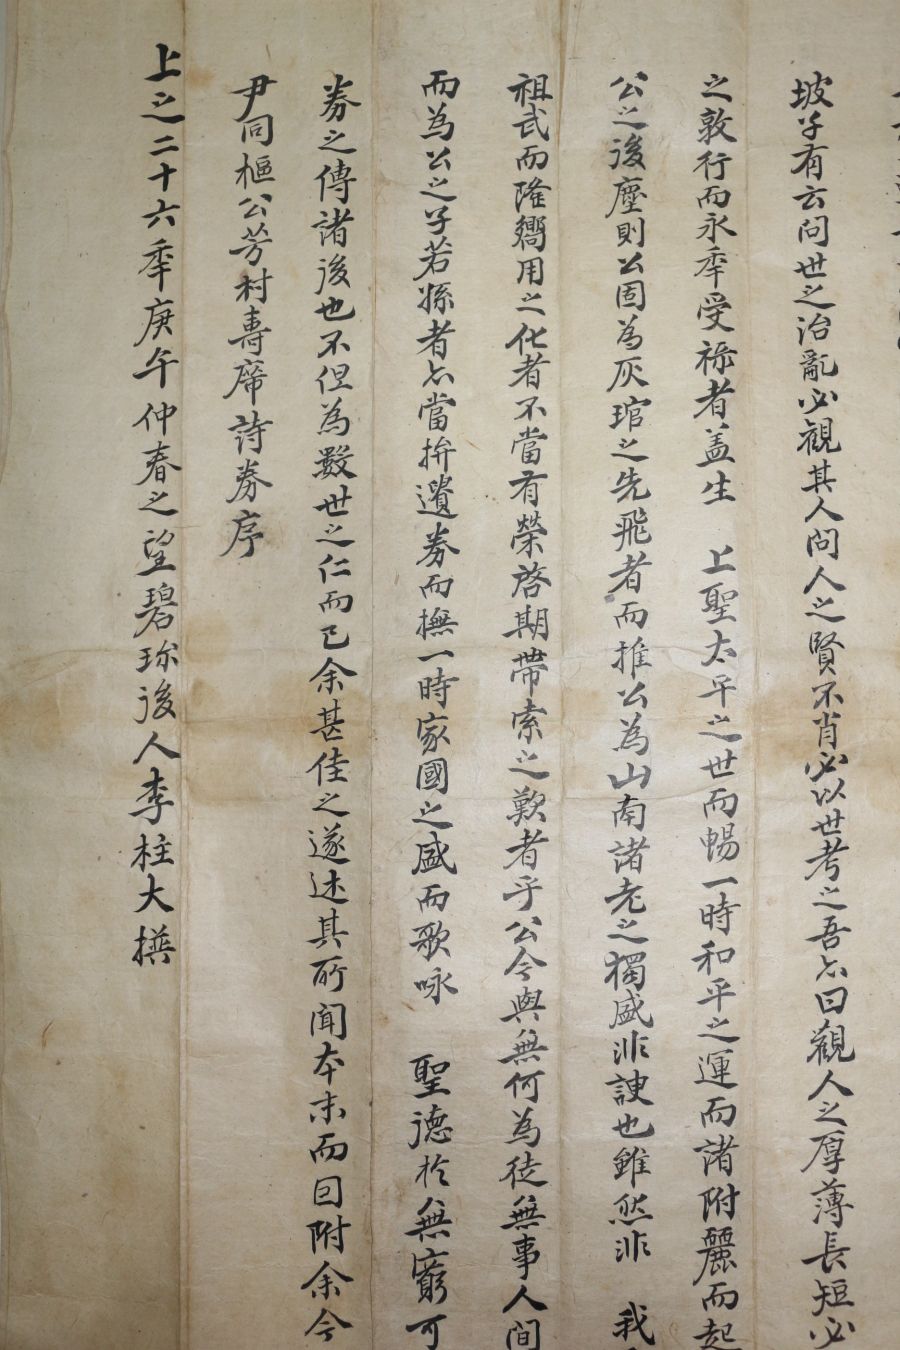 坡翁有云問世之治亂必觀其人問人之賢不肖必以世考之吾亦曰觀人之厚薄長短必
之敦行而永年受祿者盖生　上聖太平之世而暢一時和平之運而諸附麗而起
公之後塵則公固為灰琯之先飛者而推公為山南諸老之獨盛非諛也雖然非　我
祖武而隆嚮用之化者不當有榮啓期帶索之歎者乎公今與無何為徒無事人間
而為公之子若孫者亦當拚遺券而撫一時家國之盛而歌咏　聖德於無窮可
券之傳諸後也不但為數世之仁而已余甚佳之遂述其所聞本末而曰附余今
尹同樞公芳村壽席詩券序
上之二十六年庚午仲春之望碧珎後人李柱大撰